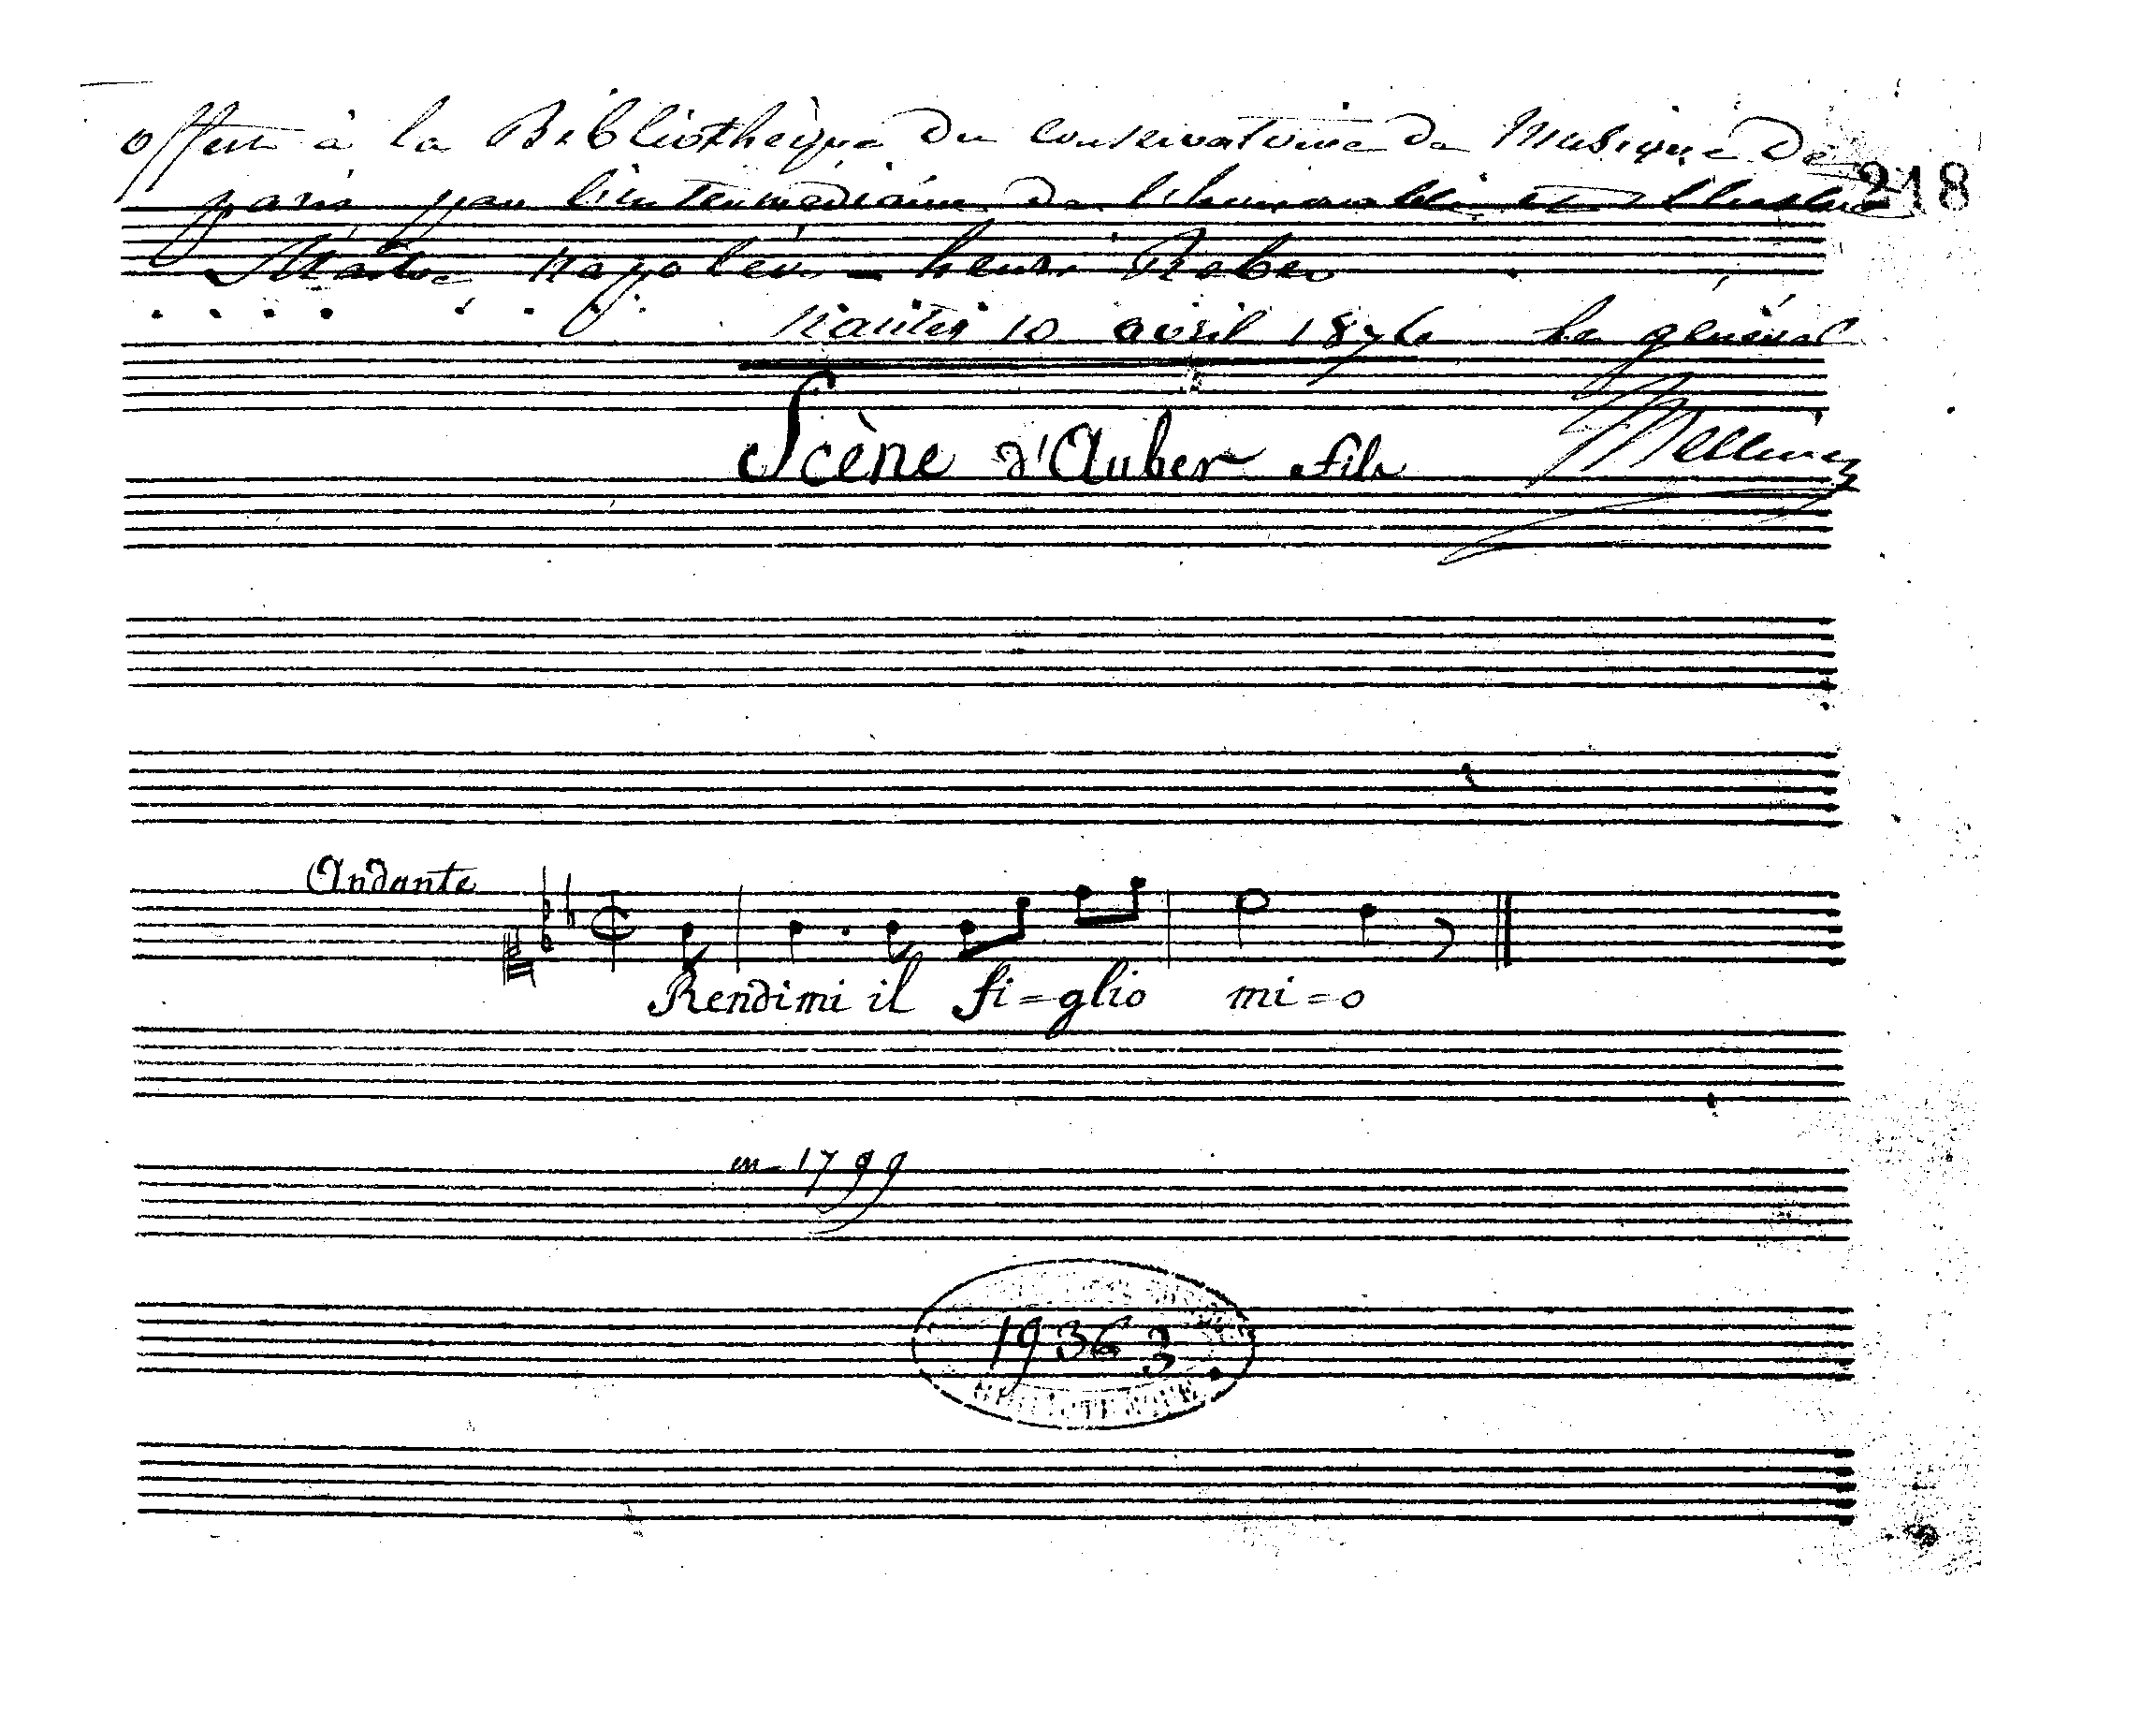 offert à la Bibliothèque du conservatoire de Musique de
218
paris par l'intermédiaire de l'honorable et illustre
Maître Napoléon - henri Reber
Nantes 10 avril 1876 Le général
Mellinet
Scène d'Auber fils
Andante
Rendimi il fi=glio mi=o
en 1799
19363